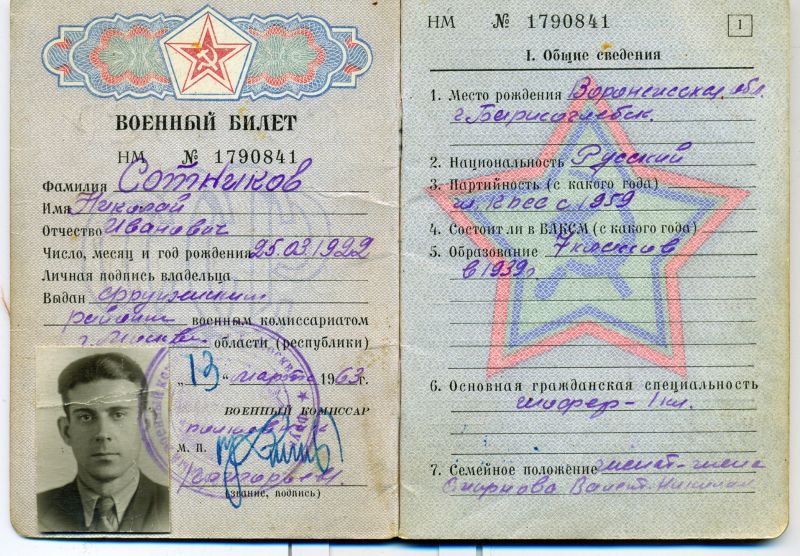 ВОЕННЫЙ БИЛЕТ
НМ № 1790841
Фамилия Сотников
Имя Николай
Отчество Иванович
Число, месяц и год рождения 25.03.1922
Личная подпись владельца
Выдан Фрунзенским
районным военным комиссариатом
г. Москвы области (республики)
„13“ марта 1963 г.
ВОЕННЫЙ КОМИССАР
полковник
М. П.
(звание, подпись)
НМ № 1790841
1
I. Общие сведения
1. Место рождения Воронежская обл.
г. Борисоглебск.
2. Национальность Русский
3. Партийность (с какого года)
чл. КПСС с 1959
4. Состоит ли в ВЛКСМ (с какого года)
5. Образование 7 классов
в 1939г
6. Основная гражданская специальность
шофер - 1 кл.
7. Семейное положение женат - жена
Смирнова Валент. Николаев.